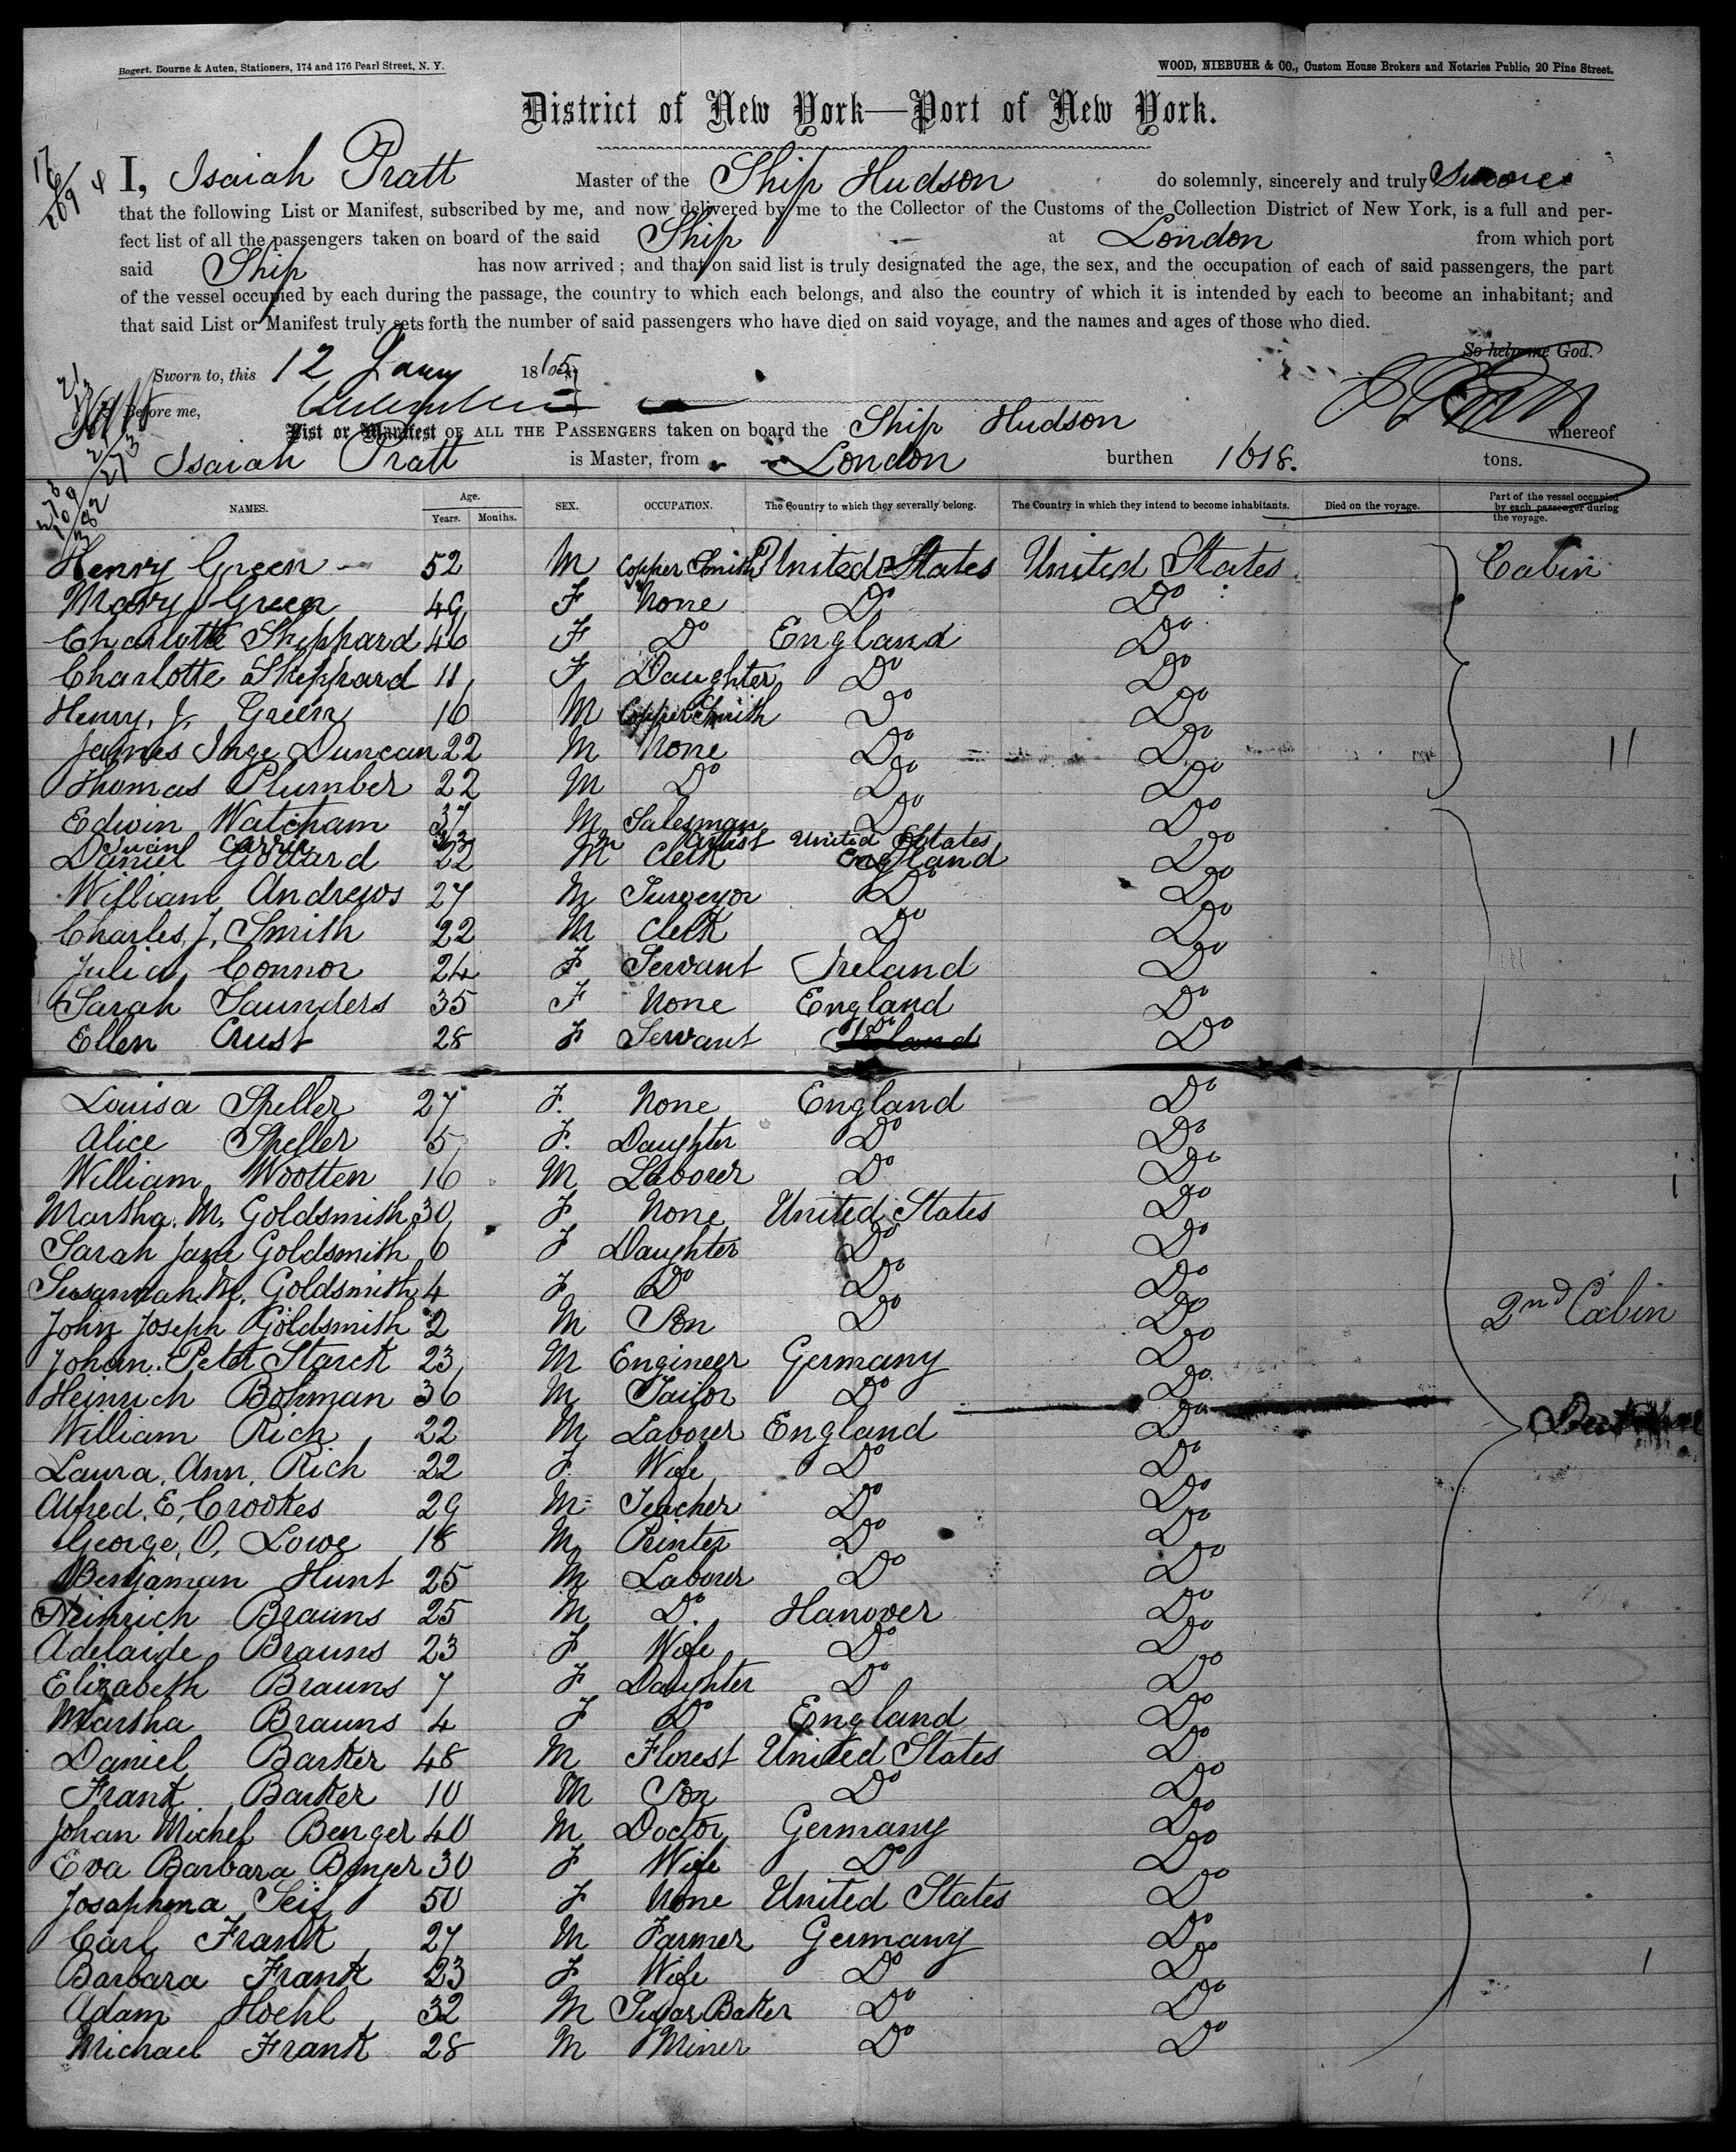 Bogert, Bourne & Auten, Stationers, 174 and 176 Pearl Street, N. Y.
WOOD, NIEBUHR & CO., Custom House Brokers and Notaries Public, 20 Pine Street.
District of New York—Port of New York.
I, Isaiah Pratt Master of the Ship Hudson do solemnly, sincerely and truly Swear
that the following List or Manifest, subscribed by me, and now delivered by me to the Collector of the Customs of the Collection District of New York, is a full and per-
fect list of all the passengers taken on board of the said Ship at London from which port
said Ship has now arrived; and that on said list is truly designated the age, the sex, and the occupation of each of said passengers, the part
of the vessel occupied by each during the passage, the country to which each belongs, and also the country of which it is intended by each to become an inhabitant; and
that said List or Manifest truly sets forth the number of said passengers who have died on said voyage, and the names and ages of those who died.
So help me God.
Sworn to, this 12 Jany 1865
Before me,
List or Manifest OF ALL THE PASSENGERS taken on board the Ship Hudson whereof
Isaiah Pratt is Master, from London burthen 1618. tons.
NAMES. Age. Years. Months. SEX. OCCUPATION. The Country to which they severally belong. The Country in which they intend to become inhabitants. Died on the voyage. Part of the vessel occupied by each passenger during the voyage.
Henry Green 52 M Copper Smith United States United States Cabin
Mary Green 49 F None Do Do
Charlotte Sheppard 46 F Do England Do
Charlotte Sheppard 11 F Daughter Do Do
Henry, J, Green 16 M Copper Smith Do Do
James Inge Duncan 22 M None Do Do 11
Thomas Plumber 22 M Do Do Do
Edwin Watcham 37 M Salesman Do Do
Juan Carrie 33 M Artist United States
Daniel Godard 22 M Clerk England Do
William Andrews 27 M Surveyor Do Do
Charles, J, Smith 22 M Clerk Do Do
Julia Connor 24 F Servant Ireland Do
Sarah Saunders 35 F None England Do
Ellen Crust 28 F Servant Do Do
Louisa Speller 27 F. None England Do
Alice Speller 5 F. Daughter Do Do
William Wootten 16 M Laborer Do Do
Martha. M. Goldsmith 30 F None United States Do
Sarah Jane Goldsmith 6 F Daughter Do Do
Susannah. M. Goldsmith 4 F Do Do Do
2nd Cabin
John Joseph Goldsmith 2 M Son Do Do
Johan. Peter Starck 23 M Engineer Germany Do
Heinrich Bohman 36 M Tailor Do Do
William Rich 22 M Laborer England Do
Laura, Ann, Rich 22 F. Wife Do Do
Alfred, E, Crookes 29 M Teacher Do Do
George, O, Lowe 18 M Printer Do Do
Benjaman Hunt 25 M Laborer Do Do
Heinrich Brauns 25 M Do. Hanover Do
Adelaide Brauns 23 F Wife Do Do
Elizabeth Brauns 7 F Daughter Do Do
Martha Brauns 4 F Do England Do
Daniel Barker 48 M Florest United States Do
Frank Barker 10 M Son Do Do
Johan Michel Benger 40 M Doctor Germany Do
Eva Barbara Benger 30 F Wife Do Do
Josaphena Seis 50 F None United States Do
Carl Frank 27 M Farmer Germany Do
Barbara Frank 23 F Wife Do Do
Adam Hoehl 32 M Sugar Baker Do Do
Michael Frank 28 M Miner Do Do